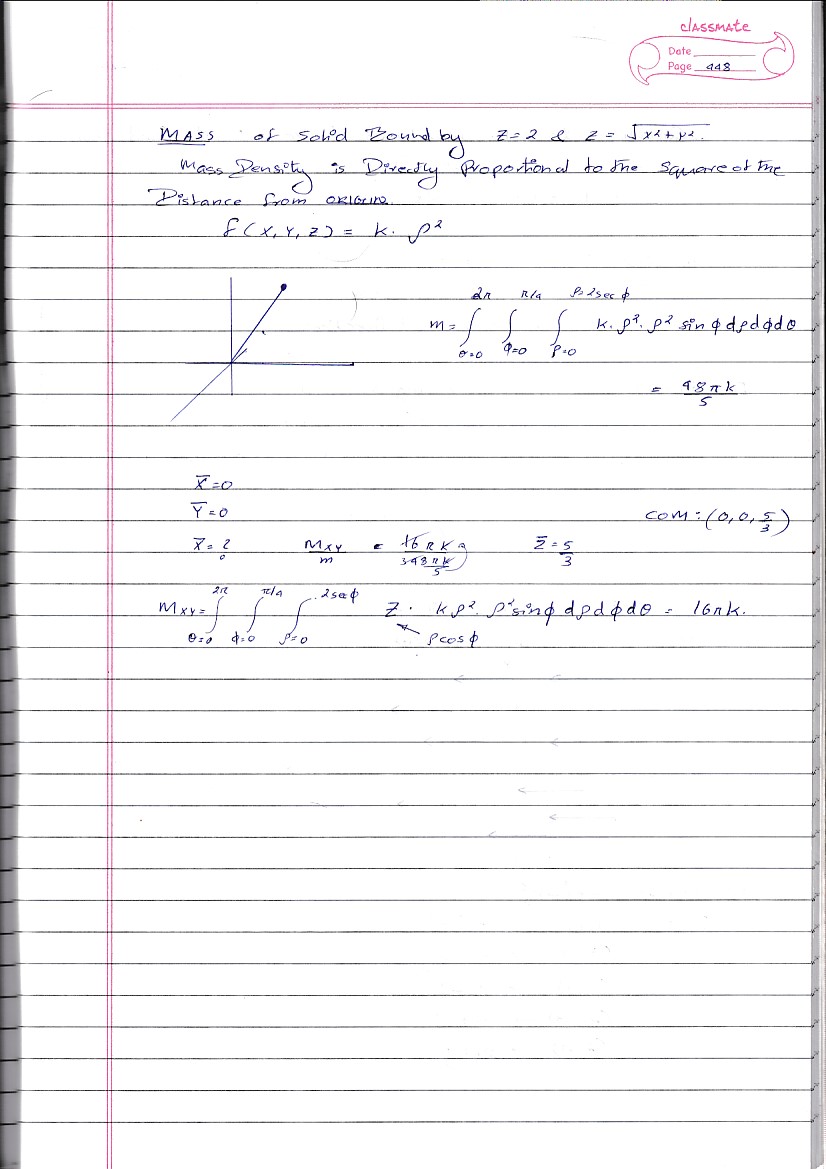 classmate
Date
Page 448
Mass of Solid Bound by Z=2 & Z = √x²+y².
Mass Density is Directly Proportional to the Square of the
Distance from ORIGIN.
f(x,y,z) = k. ρ²
m = ∫θ=0^2π ∫φ=0^π/4 ∫ρ=0^ρ=2secφ k.ρ².ρ² sinφ dρdφdθ
= 48πk/5
X̄=0
Ȳ=0
COM: (0,0,5/3)
X̄=? Mxy/m = Z̄=5/3
Mxy = ∫θ=0^2π ∫φ=0^π/4 ∫ρ=0^2secφ Z. kρ².ρ²sinφ dρdφdθ = 16πk.
ρcosφ